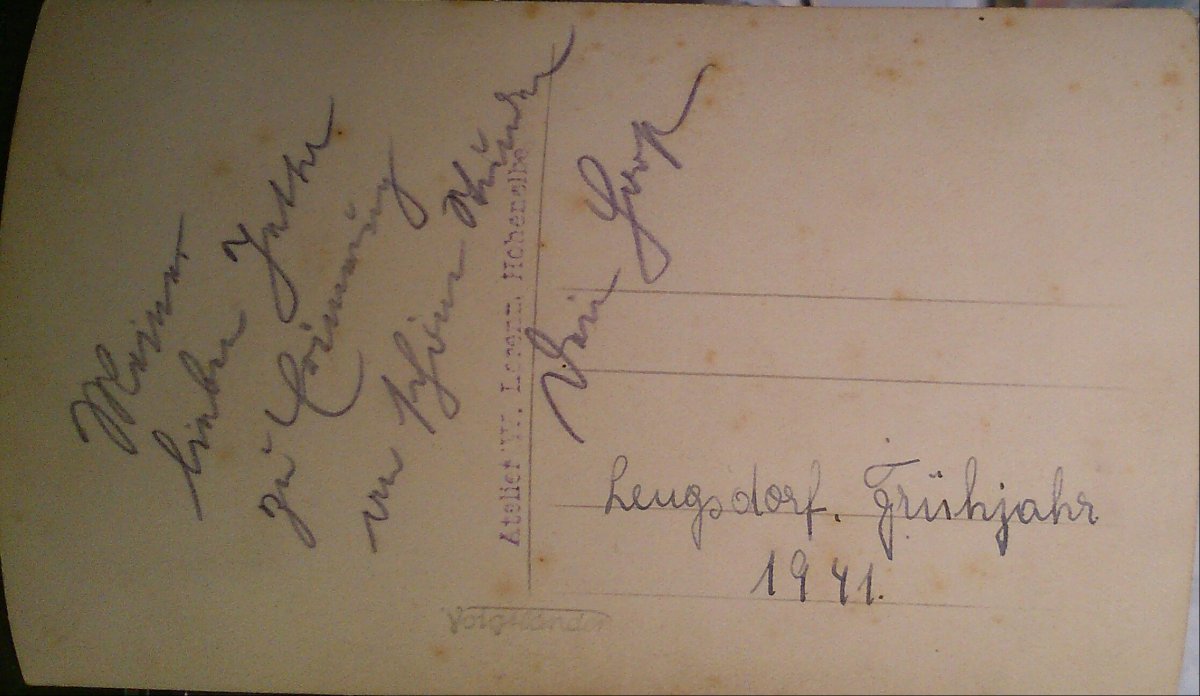 Meiner
lieben
zur Erinnerung
an schöne Stunden
Dein
Atelier W. Hohenelbe
Lengsdorf. Frühjahr
1941.
Voigtländer